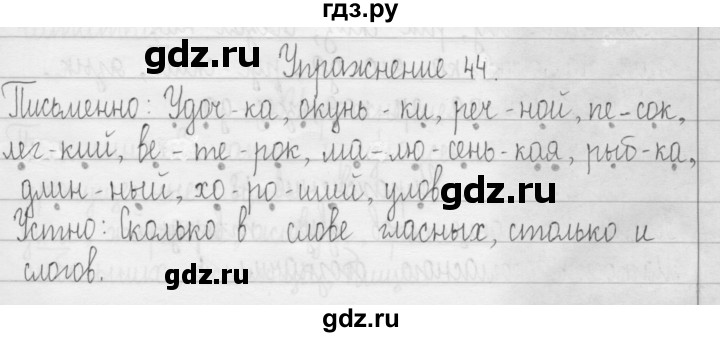 гдз.ру
gdz.ru
Упражнение 44.
Письменно: Удоч-ка, окунь-ки, реч-ной, пе-сок,
лег-кий, ве-те-рок, ма-лю-сень-кая, рыб-ка,
длин-ный, хо-ро-ший, улов
gdz.ru
Устно: Сколько в слове гласных, столько и
слогов.
gdz.ru
gdz.ru